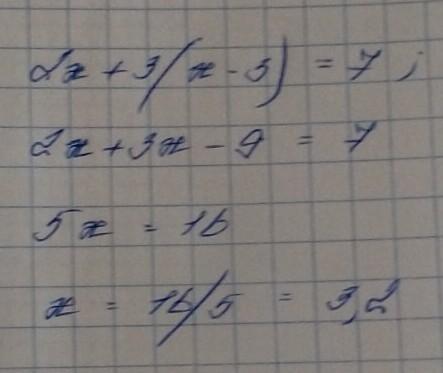 2x + 3(x - 3) = 7;
2x + 3x - 9 = 7
5x = 16
x = 16/5 = 3,2